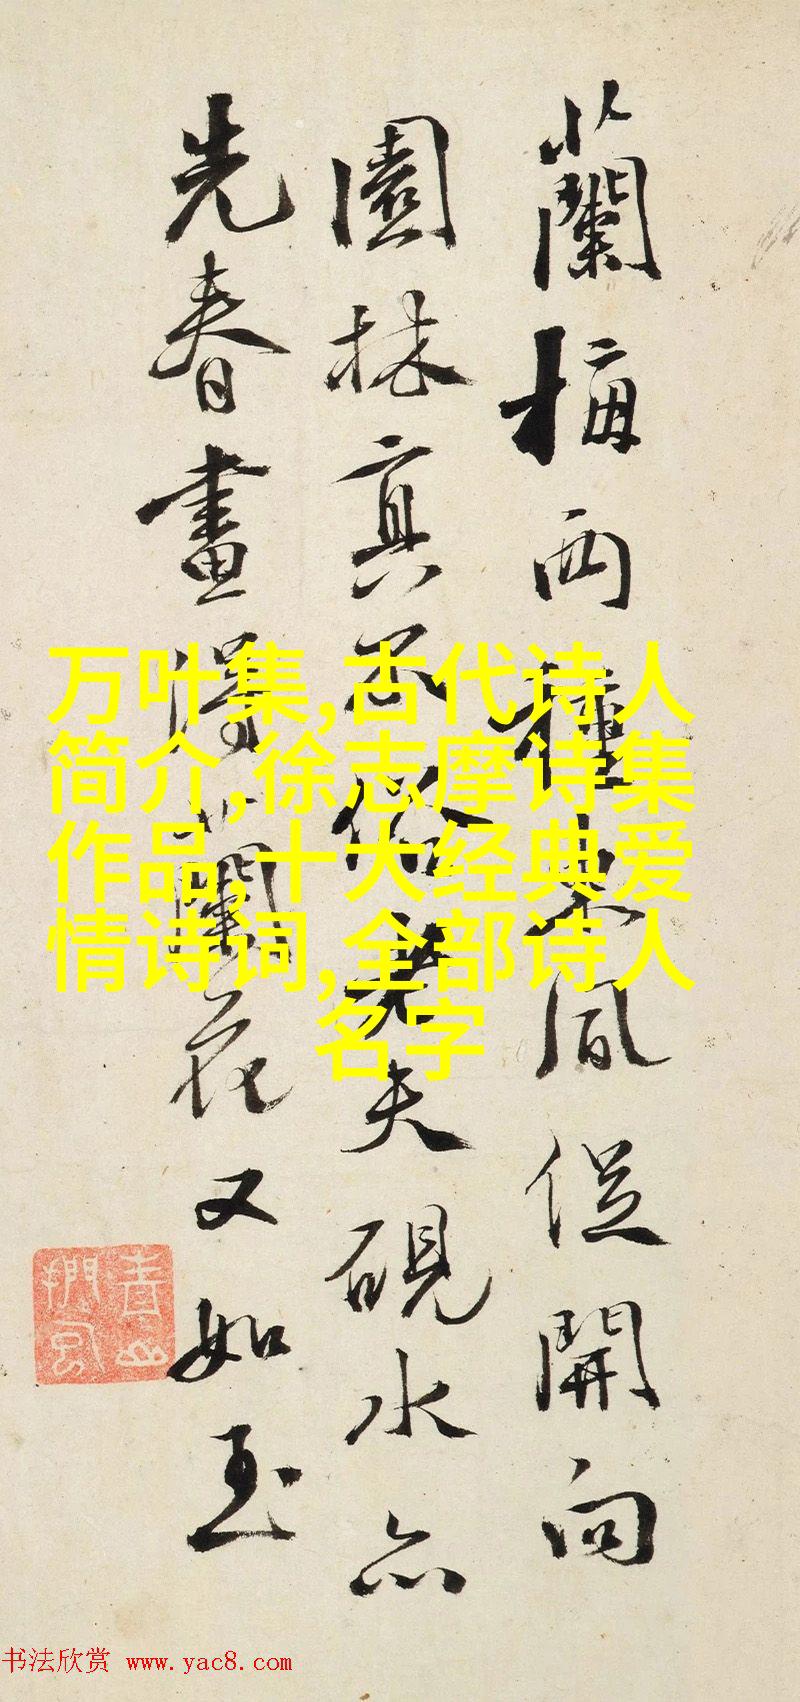 蘭梅兩種東風從開向
園林真不俗老夫硯水亦
先春畫得蘭花又如玉
万叶集,古代诗人
简介,徐志摩诗集
作品,十大经典爱
情诗词,全部诗人
名字
书法欣赏 www.yac8.com